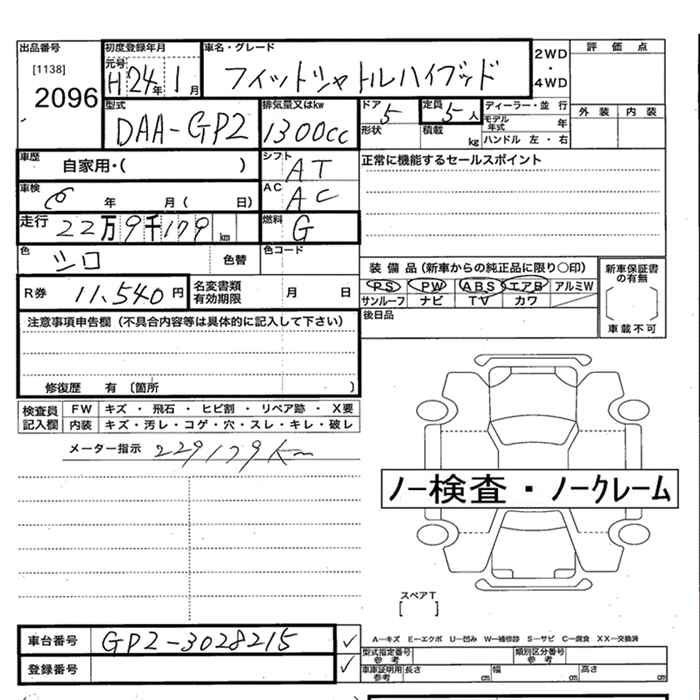 出品番号 初度登録年月 車名・グレード 2WD・4WD 評価点
[1138] 元号 H24年1月 フィットシャトルハイブリッド
2096
型式 排気量又はkw ドア 定員 ディーラー・並行 外装 内装
DAA-GP2 1300cc 5 5人 モデル年式 年
形状 積載 kg ハンドル 左・右
車歴 自家用・( ) シフト AT 正常に機能するセールスポイント
車検 6年 月( 日) AC AC
走行 22万9千179km 燃料 G
色 シロ 色替 色コード
装備品(新車からの純正品に限り○印) 新車保証書の有無
R券 11,540円 名変書類有効期限 月 日 PS PW ABS エアB アルミW
サンルーフ ナビ TV カワ
[ ]
車載不可
注意事項申告欄(不具合内容等は具体的に記入して下さい) 後日品
修復歴 有 〔箇所 〕
検査員記入欄 FW キズ・飛石・ヒビ割・リペア跡・X要
内装 キズ・汚レ・コゲ・穴・スレ・キレ・破レ
メーター指示 229179km
ノー検査・ノークレーム
スペアT
[ ]
車台番号 GP2-3028215 ✓
A−キズ E−エクボ U−凹み W−補修跡 S−サビ C−腐食 XX−交換済
登録番号 ✓
型式指定番号 参考 類別区分番号 参考
車庫証明用 参考 長さ cm 幅 cm 高さ cm